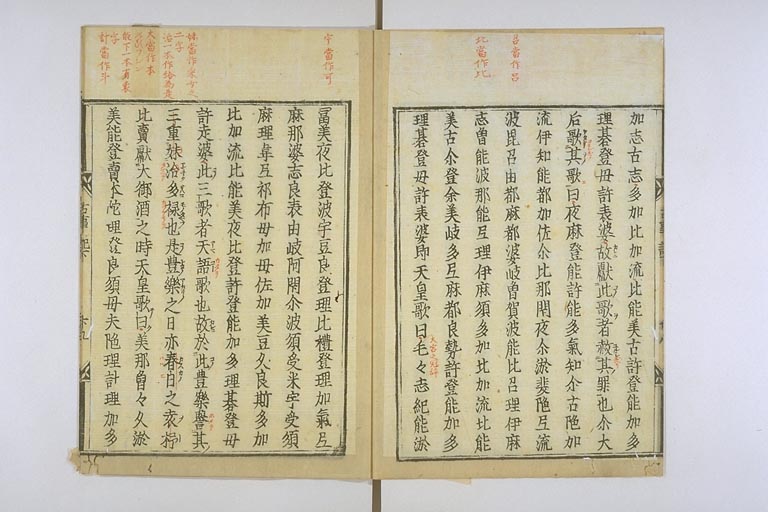 吕當作呂
北當作比
加志古志多加比加流比能美古許登能加多
理碁登毋許袁婆故獻此歌者赦其罪也尒大
后歌其歌曰夜麻登能許能多氣知尒古陁加
流伊知能都加佐尒比那閇夜尒淤斐陁互流
波毘吕由都麻都婆岐曽賀波能比吕理伊麻
志曽能波那能互理伊麻須多加比加流比能
美古尒登余美岐多互麻都良勢許登能加多
理碁登毋許袁婆即天皇歌曰毛々志紀能淤
宇當作可
二字
治一本作給為是
大當作本
計當作斗
冨美夜比登波宇豆良登理比禮登理加氣互
麻那婆志良袁由岐阿閇尒波須受米宇受須
麻理韋互祁布毋加毋佐加美豆久良斯多加
比加流比能美夜比登許登能加多理碁登毋
許袁婆此三歌者天語歌也故於此豊樂譽其
三重婇治多禄也是豊樂之日亦春日之袁杼
比賣獻大御酒之時天皇歌曰美那曽々久淤
美能登賣本陀理登良須毋夫陁理計理加多